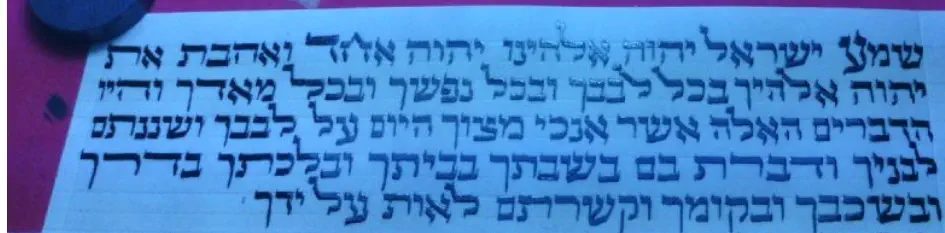 שמע ישראל יהוה אלהינו יהוה אחד ואהבת את
יהוה אלהיך בכל לבבך ובכל נפשך ובכל מאדך והיו
הדברים האלה אשר אנכי מצוך היום על לבבך ושננתם
לבניך ודברת בם בשבתך בביתך ובלכתך בדרך
ובשכבך ובקומך וקשרתם לאות על ידך